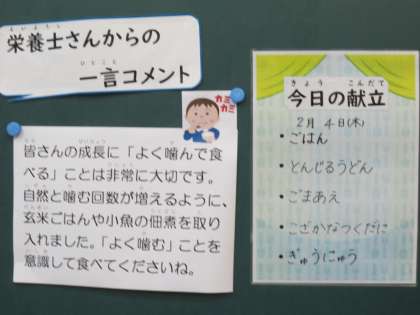 栄養士さんからの
一言コメント
カミ
カミ
皆さんの成長に「よく噛んで食
べる」ことは非常に大切です。
自然と噛む回数が増えるように、
玄米ごはんや小魚の佃煮を取り
入れました。「よく噛む」ことを
意識して食べてくださいね。
きょう こんだて
今日の献立
2月 4日(木)
・ごはん
・とんじるうどん
・ごまあえ
・こざかなつくだに
・ぎゅうにゅう